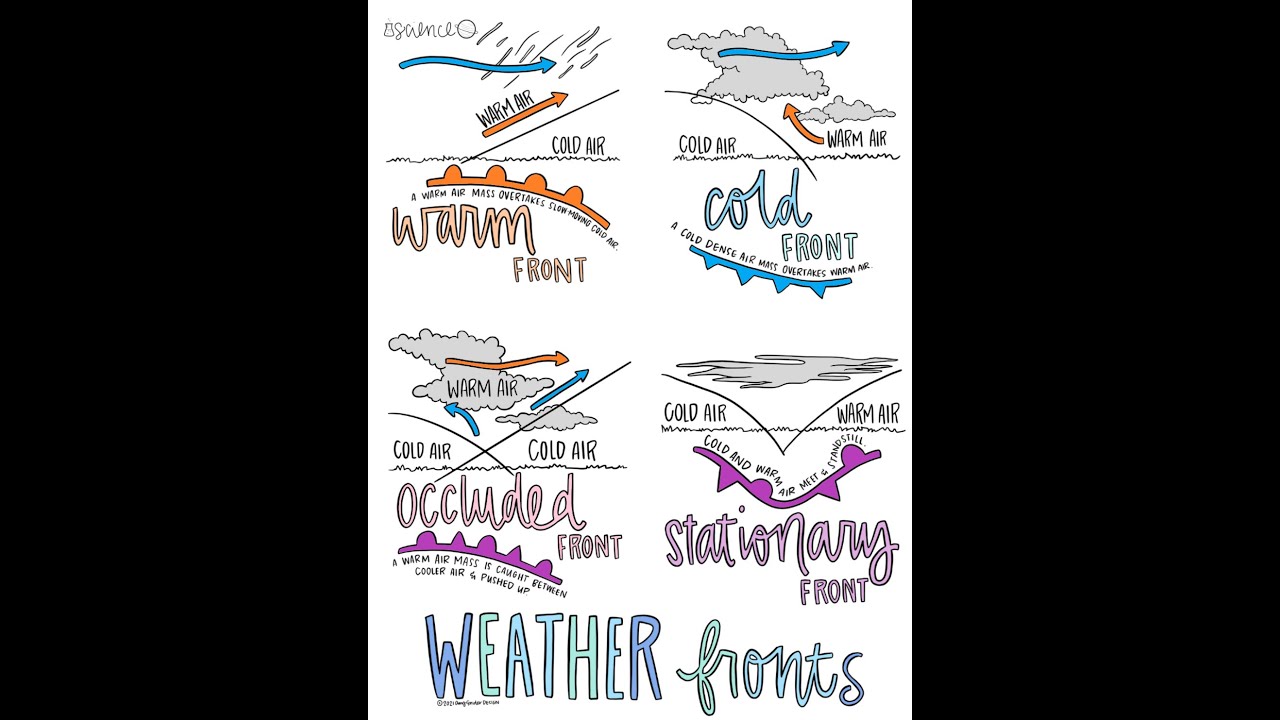 science
WARM AIR
COLD AIR
A WARM AIR MASS OVERTAKES SLOW-MOVING COLD AIR.
warm
FRONT
COLD AIR
WARM AIR
cold
FRONT
A COLD DENSE AIR MASS OVERTAKES WARM AIR.
WARM AIR
COLD AIR
COLD AIR
occluded
FRONT
A WARM AIR MASS IS CAUGHT BETWEEN
COOLER AIR & PUSHED UP.
COLD AIR
WARM AIR
COLD AND WARM AIR MEET & STANDSTILL.
stationary
FRONT
WEATHER fronts